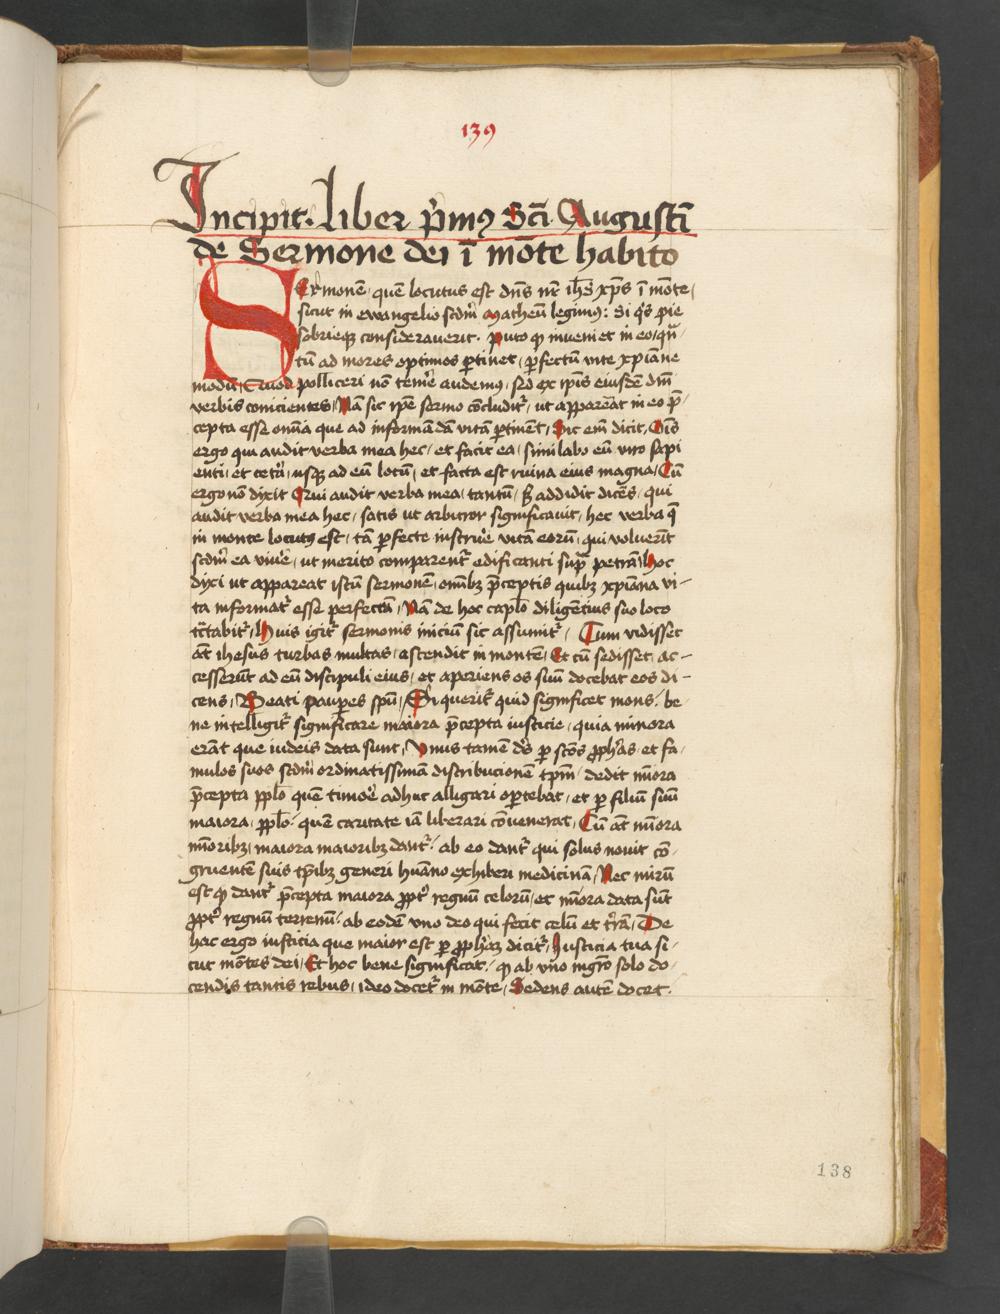 139
Incipit. liber p̄mꝰ Scī Augustī
de Sermone dei ī mōte habito
Sermonē, quē locutus est dn̄s nr̄ ih̄s xp̄s ī mōte,
sicut in ewangelio scdm̄ Matheū legimꝰ: Si q̄s pie
sobrieqꝫ consideraverit. Puto ꝙ inveniet in eo, qn̄
tū ad mores optimos ꝑtinet, ꝑfectū vite xp̄iane
modū, Quod polliceri nō temē audemꝰ, sed ex ip̄is eiusdē dn̄i
verbis conicientes, Nā sic ip̄e sermo cōcludit᷑, ut appareat in eo p̄
cepta esse om̄ia que ad informādā vitā ꝑtinēt, Sic em̄ dicit, Om̄s
ergo qui audit verba mea hec, et facit ea, similabo eū viro sapi
enti, et cet̄a, usqꝫ ad eū locū, et facta est ruina eius magna, Cū
ergo nō dixit Qui audit verba mea, tantū, sꝫ addidit dicēs, qui
audit verba mea hec, satis ut arbitror significavit, hec verba q̄
in monte locutꝰ est, tā ꝑfecte instruē vitā eorū, qui voluerīt
scdm̄ ea vivē, ut merito comparent᷑ edificanti suꝑ petrā, Hoc
dixi ut appareat istū sermonē, om̄ibꝫ p̄ceptis quibꝫ xp̄iana vi-
ta informat᷑ esse perfectū, Nā de hoc capl̄o diligētius suo loco
tc̄tabit᷑, Huiꝰ igit᷑ sermonis iniciū sic assumit᷑, Cum vidisset
aūt ihesus turbas multas, ascendit in montē, Et cū sedisset, ac-
cesserūt ad eū discipuli eius, et aperiens os suū docebat eos di-
cens, Beati pauꝑes spū, Si querit᷑ quid significet mons. be-
ne intelligit᷑ significare maiora p̄cepta iusticie, quia minora
erāt que iudeis data sunt, Unus tamē ds̄ ꝑ scōs ꝓph̄as et fa-
mulos suos scdm̄ ordinatissimā distribucionē tp̄m, dedit m̄ora
p̄cepta pp̄lo quē timoē adhuc alligari oꝑtebat, et ꝑ filiū suū
maiora, pp̄lo. quē caritate iā liberari cōvenerat, Cū aūt m̄ora
m̄oribꝫ, maiora maioribꝫ dant᷑. ab eo dant᷑ qui solus novit cō-
gruentē suis tp̄ibꝫ generi hūano exhiberi medicinā, Nec mirū
est ꝙ dant᷑ p̄cepta maiora ꝓpt̄ regnū celorū, et m̄ora data sūt
ꝓpt̄ regnū terrenū. ab eodē uno deo qui fecit celū et t̄rā, De
hac ergo iusticia que maior est ꝑ ꝓph̄aꝫ dicit᷑, Iusticia tua si-
cut mōtes dei, Et hoc bene significat. ꝙ ab uno mgr̄o solo do-
cendis tantis rebus, ideo docet᷑ in mōte, Sedens autē docet.
138